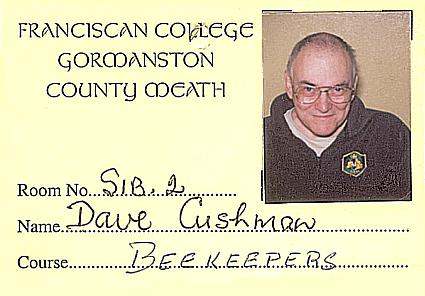 FRANCISCAN COLLEGE
GORMANSTON
COUNTY MEATH
Room No....S1B.2............
Name....Dave Cushman............
Course............BEEKEEPERS............